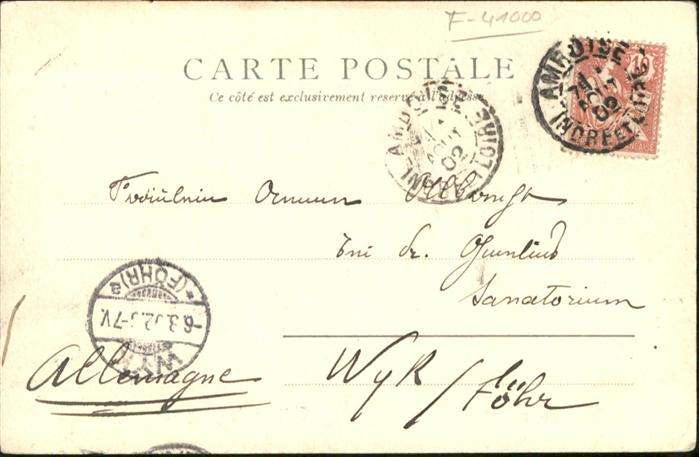 F-41000
CARTE POSTALE
Ce côté est exclusivement réservé à l'adresse
AMBOISE
INDRE ET LOIRE
02
AMBOISE
INDRE ET LOIRE
02
10
Fräulein
Dr. Gmelins
Sanatorium
WYK
(FÖHR) a
6.3.02.6-7V.
Allemagne
Wyk / Föhr